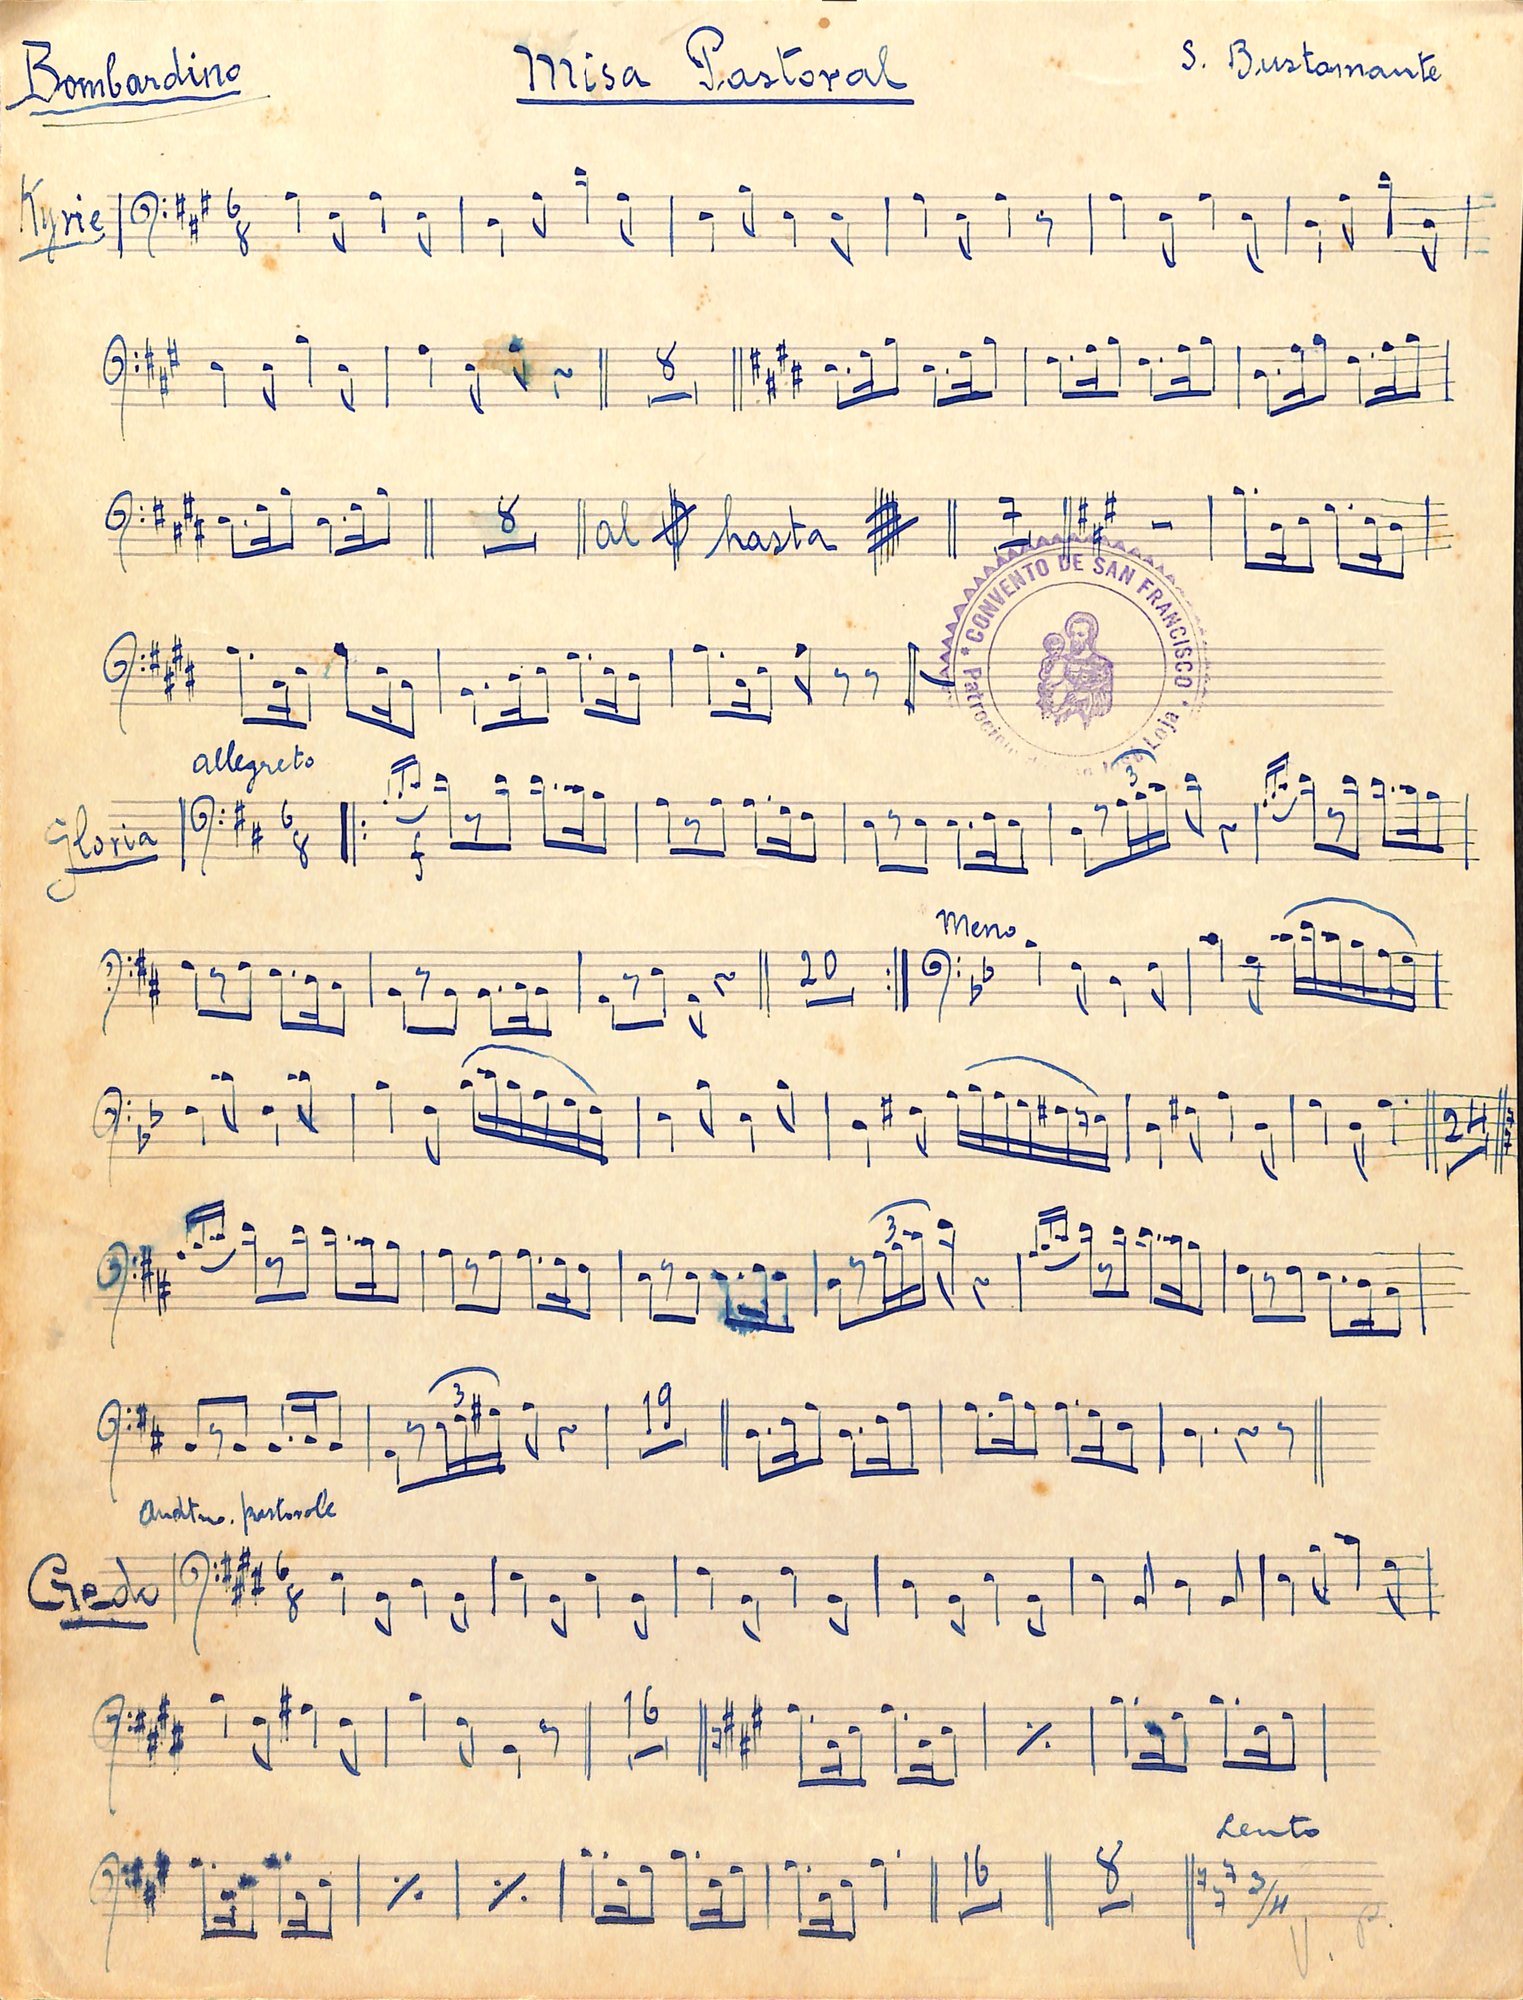 Bombardino
Misa Pastoral
S. Bustamante
Kyrie
6
8
8
8
al hasta
CONVENTO DE SAN FRANCISCO
Loja
allegreto
Gloria
6
8
f
3
Meno
20
24
3
3
19
Andtno. pastorale
Credo
6
8
16
Lento
16
8
3/4
V. P.